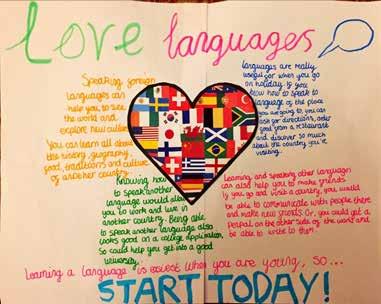 Love languages
Speaking foreign
languages can
help you to see
the world and
explore new culture
You can learn all about
the history, geography
food, traditions and culture
of another country.
Languages are really
useful for when you go
on holiday. If you
know how to speak to
language of the place
you are going to, you can
ask for directions, order
food from a restaurant
and discover so much
about the country you're
visiting.
Knowing how
to speak another
language would allow
you to work and live in
another country. Being able
to speak another language also
looks good on a college application,
so could help you get into a good
University.
Learning and speaking other language
can also help you to make friends
if you go and visit a country, you would
be able to communicate with people there
and make new friends. Or, you could get a
penpal on the other side of the world and
be able to write to them.
Learning a language is easiest when you are young, so...
START TODAY!